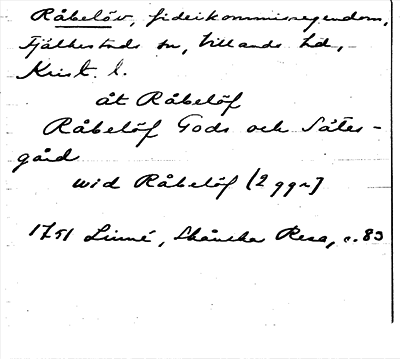 Råbelöv, fideikommissegendom,
Fjälkestads sn, Villands hd,
Krist. l.
åt Råbelöf
Råbelöf Gods och Sätes-
gård
wid Råbelöf (2 ggr)
1751 Linné, Skånska Resa, s. 83